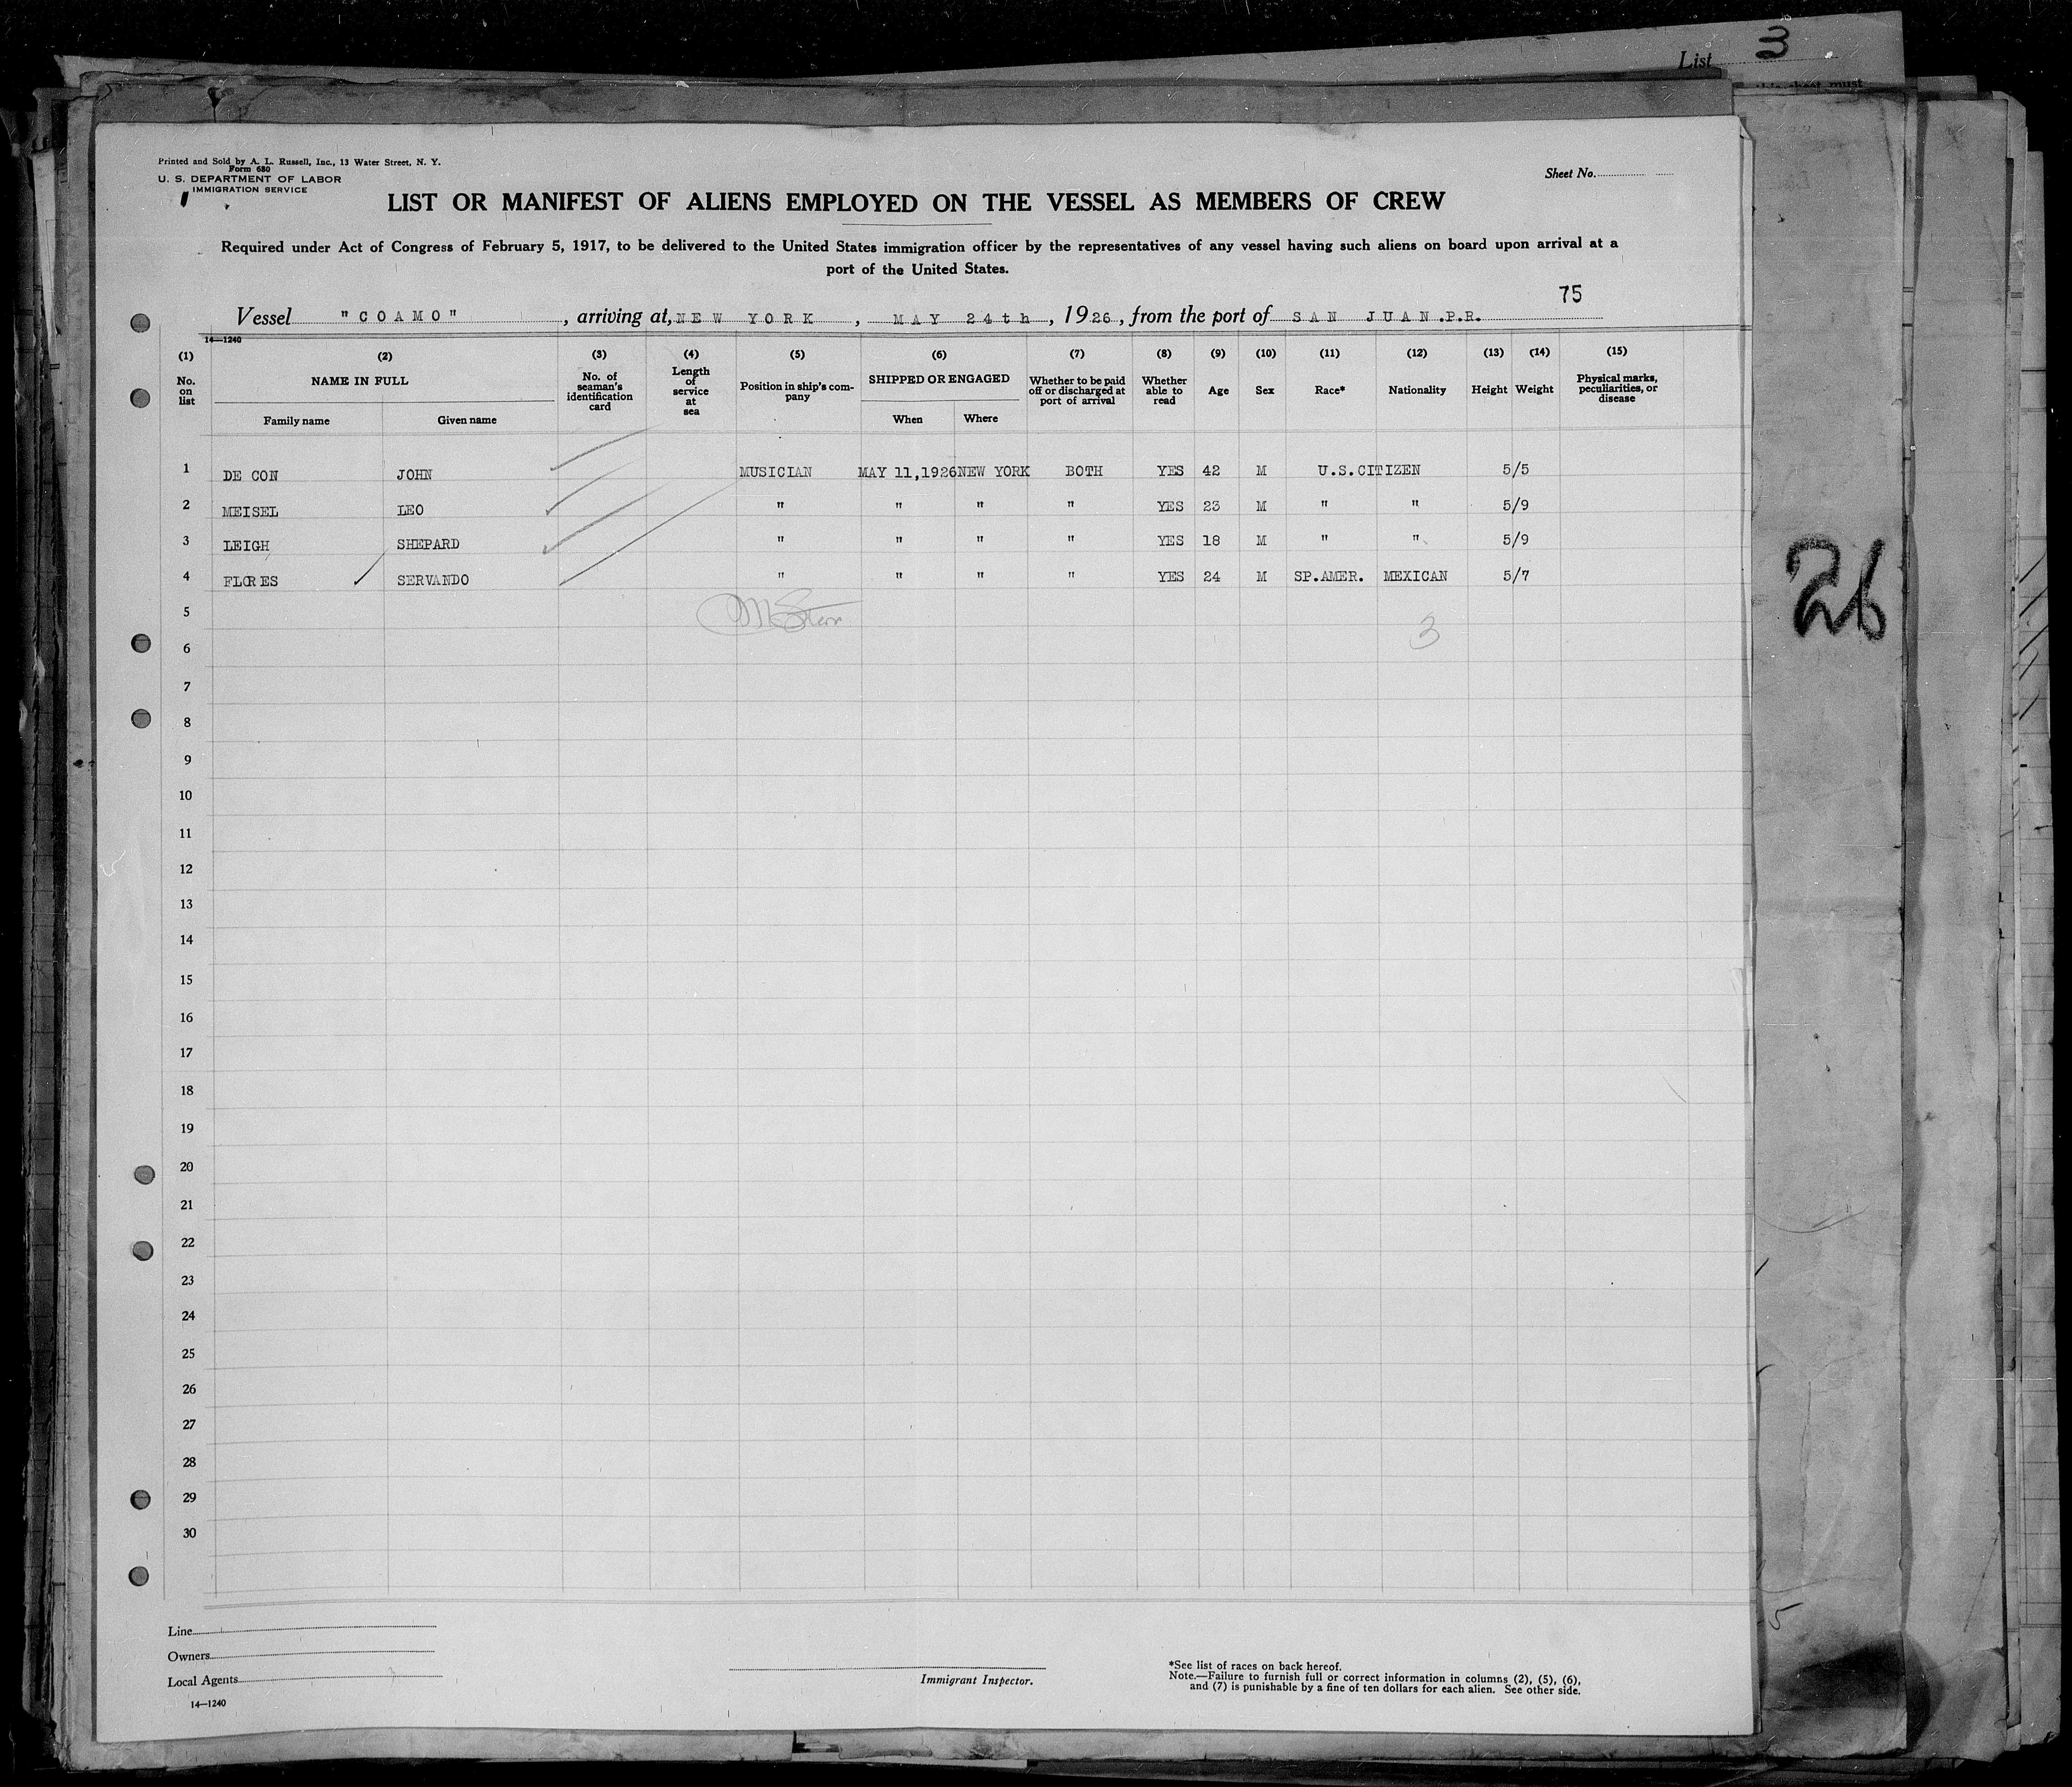 List 3
this sheet must
Printed and Sold by A. L. Russell, Inc., 13 Water Street, N. Y.
Form 680
U. S. DEPARTMENT OF LABOR
IMMIGRATION SERVICE
Sheet No.
LIST OR MANIFEST OF ALIENS EMPLOYED ON THE VESSEL AS MEMBERS OF CREW
Required under Act of Congress of February 5, 1917, to be delivered to the United States immigration officer by the representatives of any vessel having such aliens on board upon arrival at a
port of the United States.
75
Vessel "COAMO", arriving at, NEW YORK, MAY 24th, 1926, from the port of SAN JUAN.P.R.
14—1240
(1) (2) (3) (4) (5) (6) (7) (8) (9) (10) (11) (12) (13) (14) (15)
No. on list NAME IN FULL No. of seaman's identification card Length of service at sea Position in ship's company SHIPPED OR ENGAGED Whether to be paid off or discharged at port of arrival Whether able to read Age Sex Race* Nationality Height Weight Physical marks, peculiarities, or disease
Family name Given name When Where
1 DE CON JOHN MUSICIAN MAY 11,1926 NEW YORK BOTH YES 42 M U.S.CITIZEN 5/5
2 MEISEL LEO " " " " YES 23 M " " 5/9
3 LEIGH SHEPARD " " " " YES 18 M " " 5/9
4 FLORES SERVANDO " " " " YES 24 M SP.AMER. MEXICAN 5/7
5
6 3
7
8
9
10
11
12
13
14
15
16
17
18
19
20
21
22
23
24
25
26
27
28
29
30
26
5
Line
Owners
Local Agents
14—1240
Immigrant Inspector.
*See list of races on back hereof.
Note.—Failure to furnish full or correct information in columns (2), (5), (6),
and (7) is punishable by a fine of ten dollars for each alien. See other side.